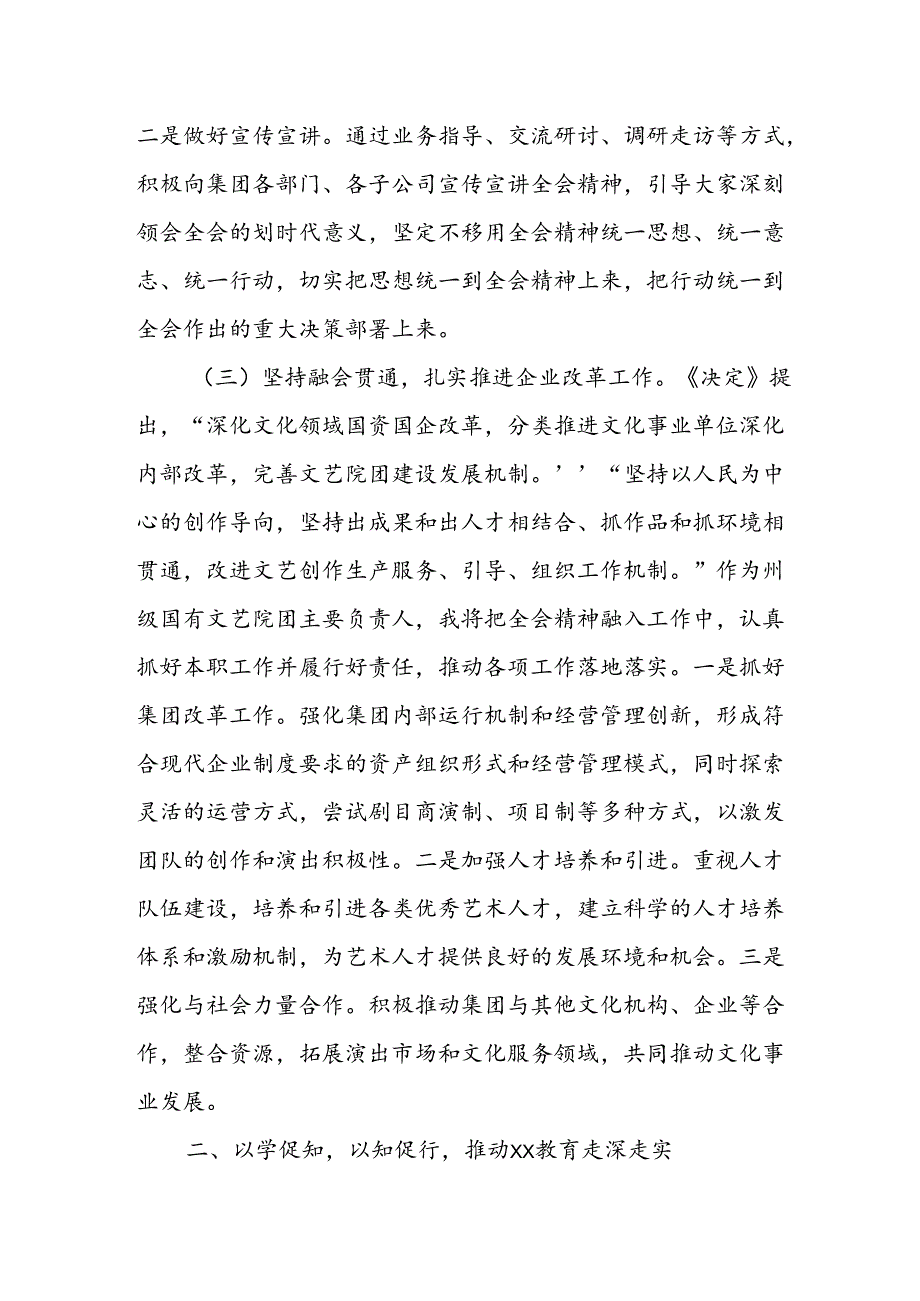 二是做好宣传宣讲。通过业务指导、交流研讨、调研走访等方式，
积极向集团各部门、各子公司宣传宣讲全会精神，引导大家深刻
领会全会的划时代意义，坚定不移用全会精神统一思想、统一意
志、统一行动，切实把思想统一到全会精神上来，把行动统一到
全会作出的重大决策部署上来。
（三）坚持融会贯通，扎实推进企业改革工作。《决定》提
出，“深化文化领域国资国企改革，分类推进文化事业单位深化
内部改革，完善文艺院团建设发展机制。’’“坚持以人民为中
心的创作导向，坚持出成果和出人才相结合、抓作品和抓环境相
贯通，改进文艺创作生产服务、引导、组织工作机制。”作为州
级国有文艺院团主要负责人，我将把全会精神融入工作中，认真
抓好本职工作并履行好责任，推动各项工作落地落实。一是抓好
集团改革工作。强化集团内部运行机制和经营管理创新，形成符
合现代企业制度要求的资产组织形式和经营管理模式，同时探索
灵活的运营方式，尝试剧目商演制、项目制等多种方式，以激发
团队的创作和演出积极性。二是加强人才培养和引进。重视人才
队伍建设，培养和引进各类优秀艺术人才，建立科学的人才培养
体系和激励机制，为艺术人才提供良好的发展环境和机会。三是
强化与社会力量合作。积极推动集团与其他文化机构、企业等合
作，整合资源，拓展演出市场和文化服务领域，共同推动文化事
业发展。
二、以学促知，以知促行，推动xx教育走深走实